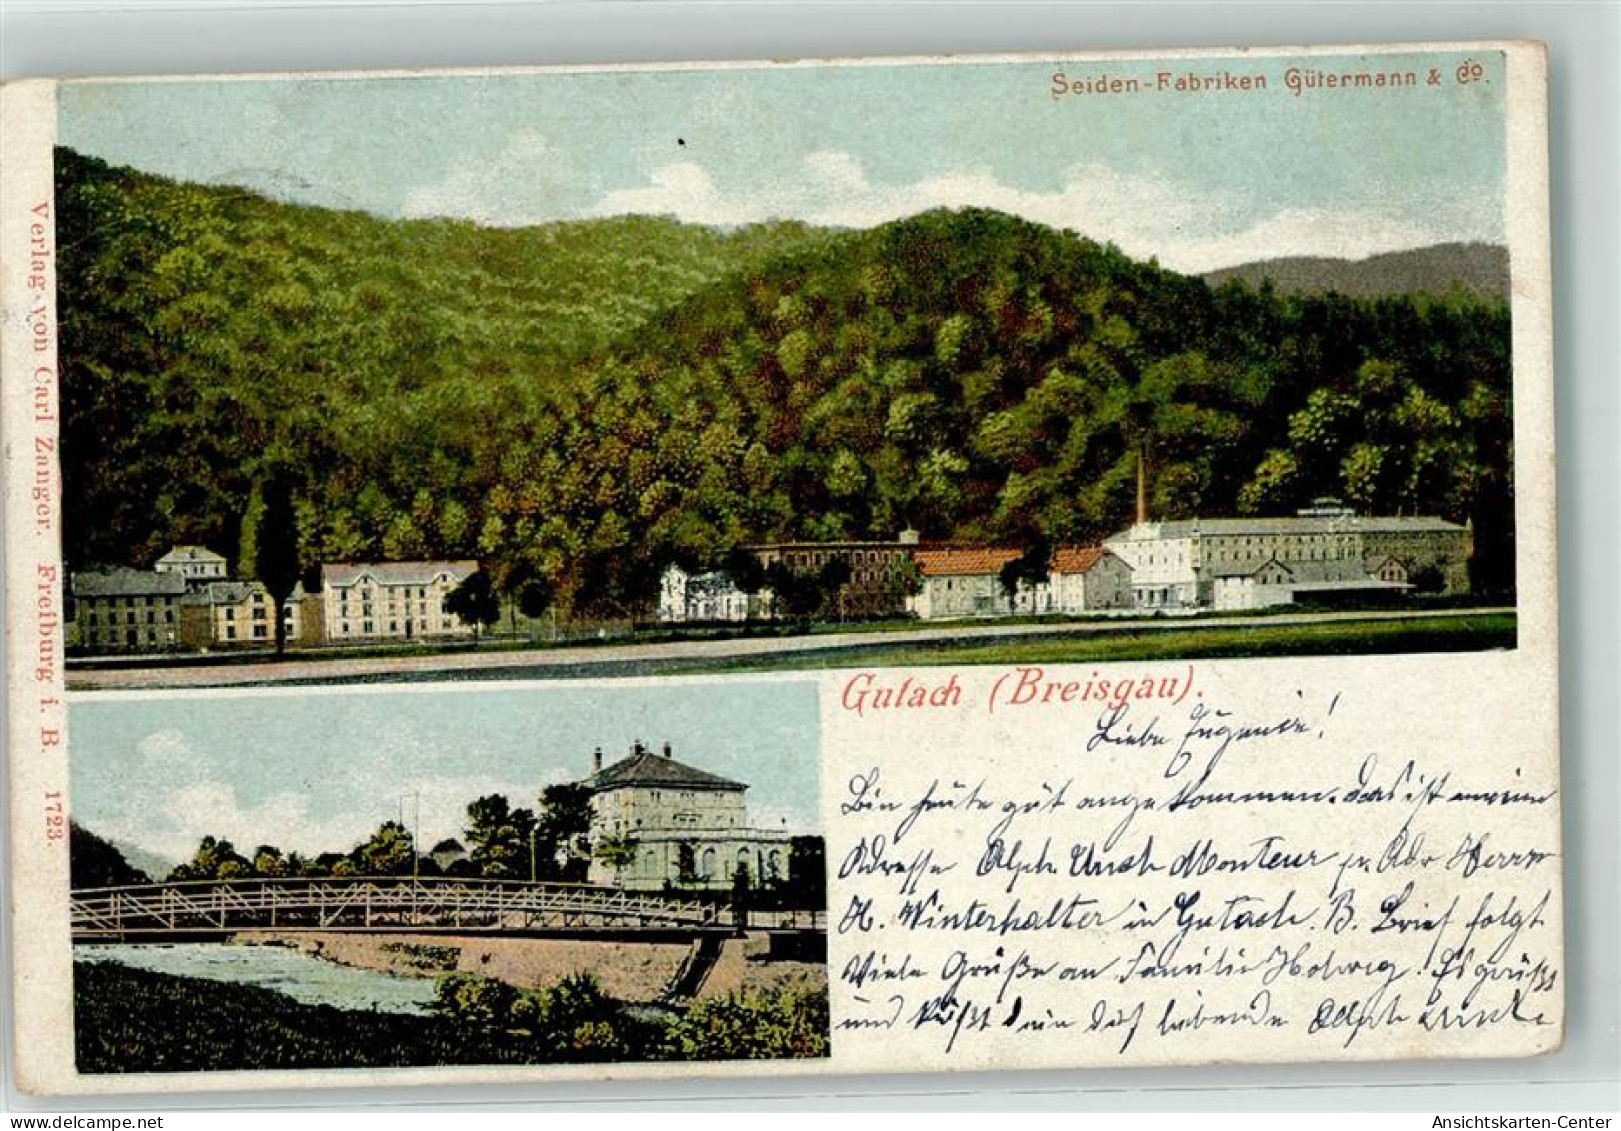 Seiden-Fabriken Gütermann & Co.
Verlag von Carl Zanger. Freiburg i. B. 1723.
Gutach (Breisgau).
Liebe Eugenie!
Bin heute gut angekommen. das ist meine
Adresse Monteur Adr Herrn
H. Winterhalter in Gutach. B. Brief folgt
Viele Grüße an Familie Es grüßt
und küßt Dein Dich liebende
AnsichtsKarten-Center